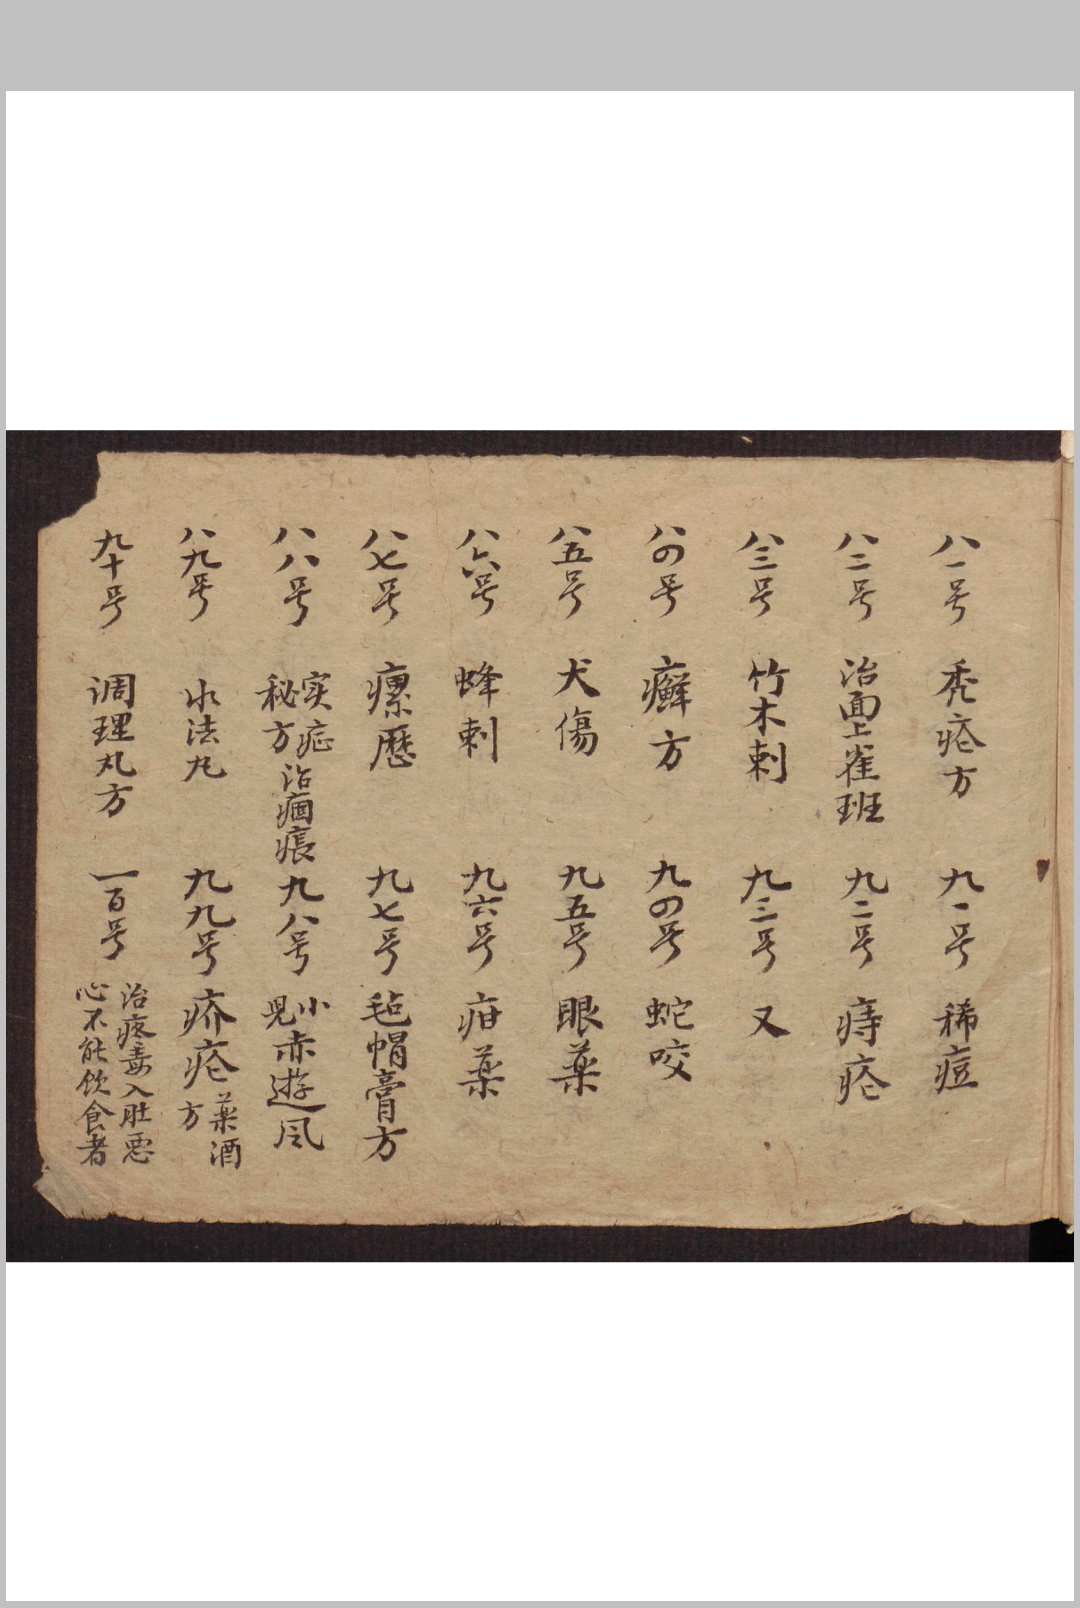 八一号 秃疮方 九一号 稀痘
八二号 治面上雀班 九二号 痔疮
八三号 竹木刺 九三号 又
八四号 癣方 九四号 蛇咬
八五号 犬傷 九五号 眼薬
八六号 蜂刺 九六号 疳薬
八七号 瘰歷 九七号 毡帽膏方
八八号 实症秘方 治痼痕 九八号 小児赤遊风
八九号 水法丸 九九号 疥疮薬酒方
九十号 调理丸方 一百号 治疼毒入肚恶心不能饮食者